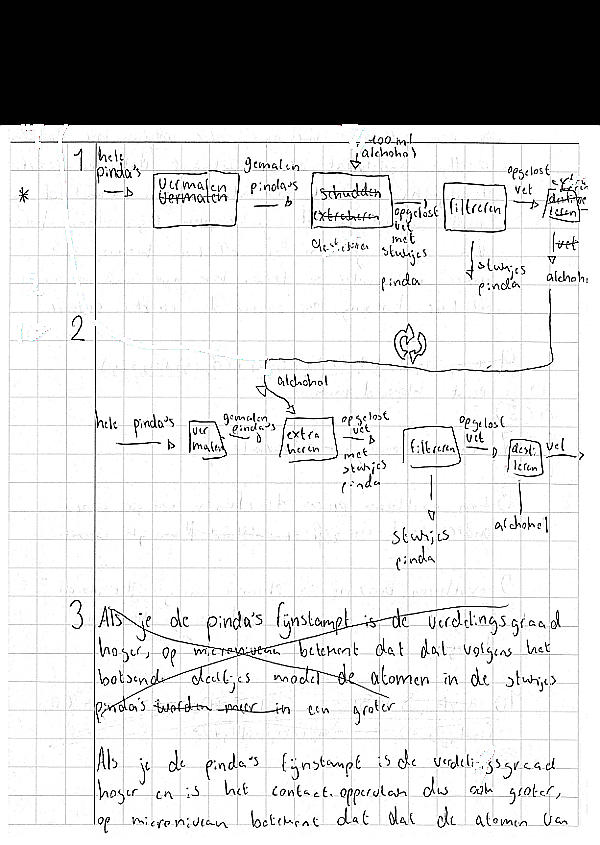 1
hele pinda's
*
vermalen
vermalen
gemalen pinda's
100 ml
alchohol
schudden
extraheren
opgelost
vet
met
stukjes
pinda
filtreren
stukjes
pinda
opgelost
vet
vet
alchoh
2
alchohol
hele pinda's
ver
malen
gemalen
pinda's
extra
heren
opgelost
vet
met
stukjes
pinda
filtreren
stukjes
pinda
opgelost
vet
desti
leren
vet
alchohol
3 Als je de pinda's fijnstampt is de verdelingsgraad
hoger, op microniveau betekent dat dat volgens het
botsende deeltjes model de atomen in de stukjes
pinda's worden meer in een groter
Als je de pinda's fijnstampt is de verdelingsgraad
hoger en is het contact oppervlak dus ook groter,
op microniveau betekent dat dat de atomen van